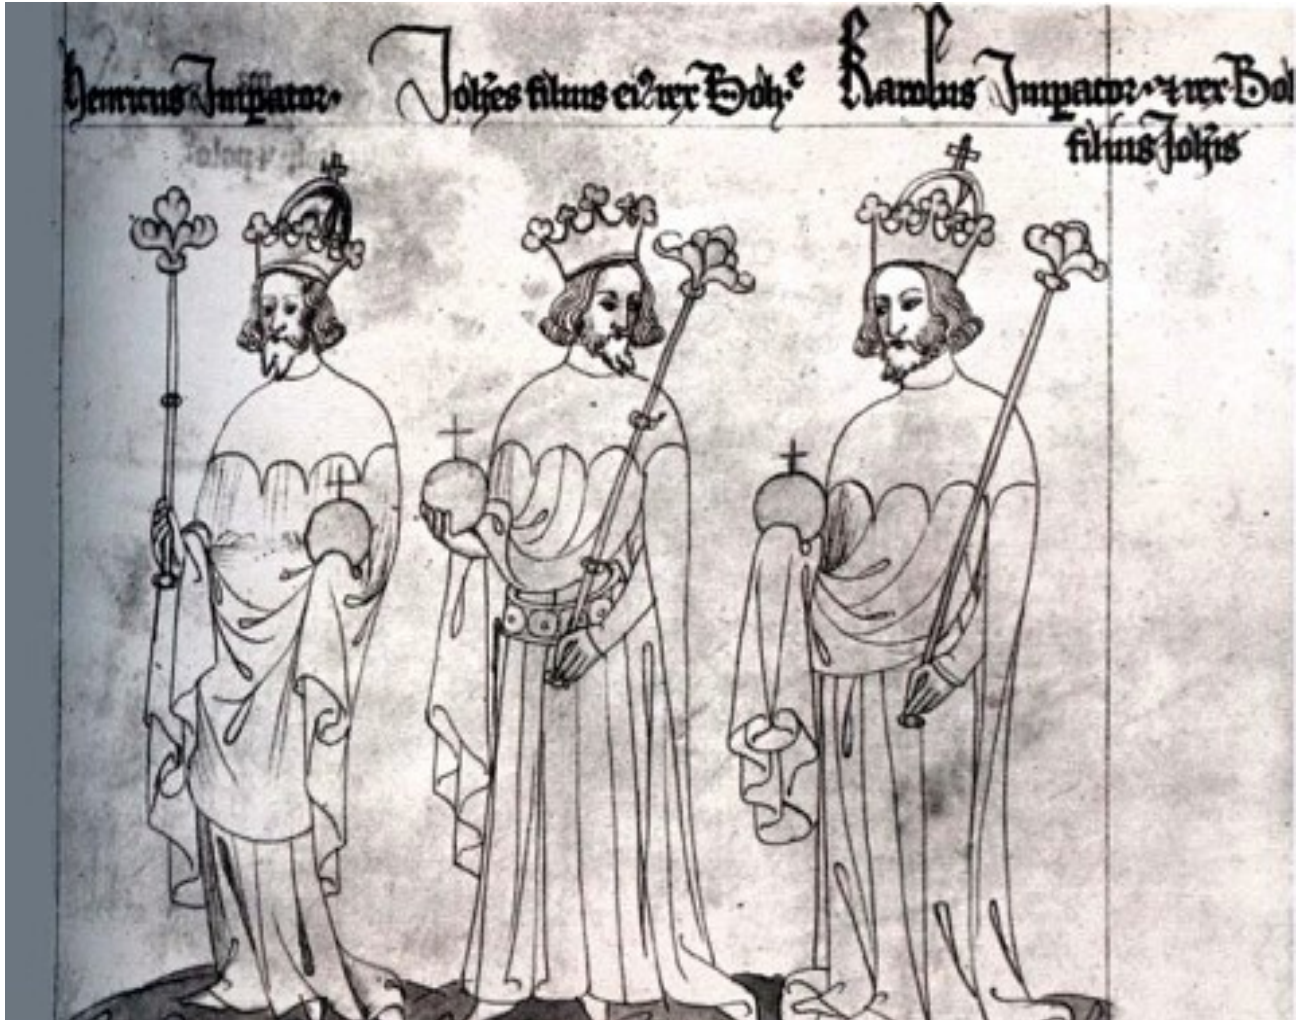 Henricus Impator·
Johes filius ei9 rex Boh·e
Karolus Impator· ⁊ rex Bo
filius Johis